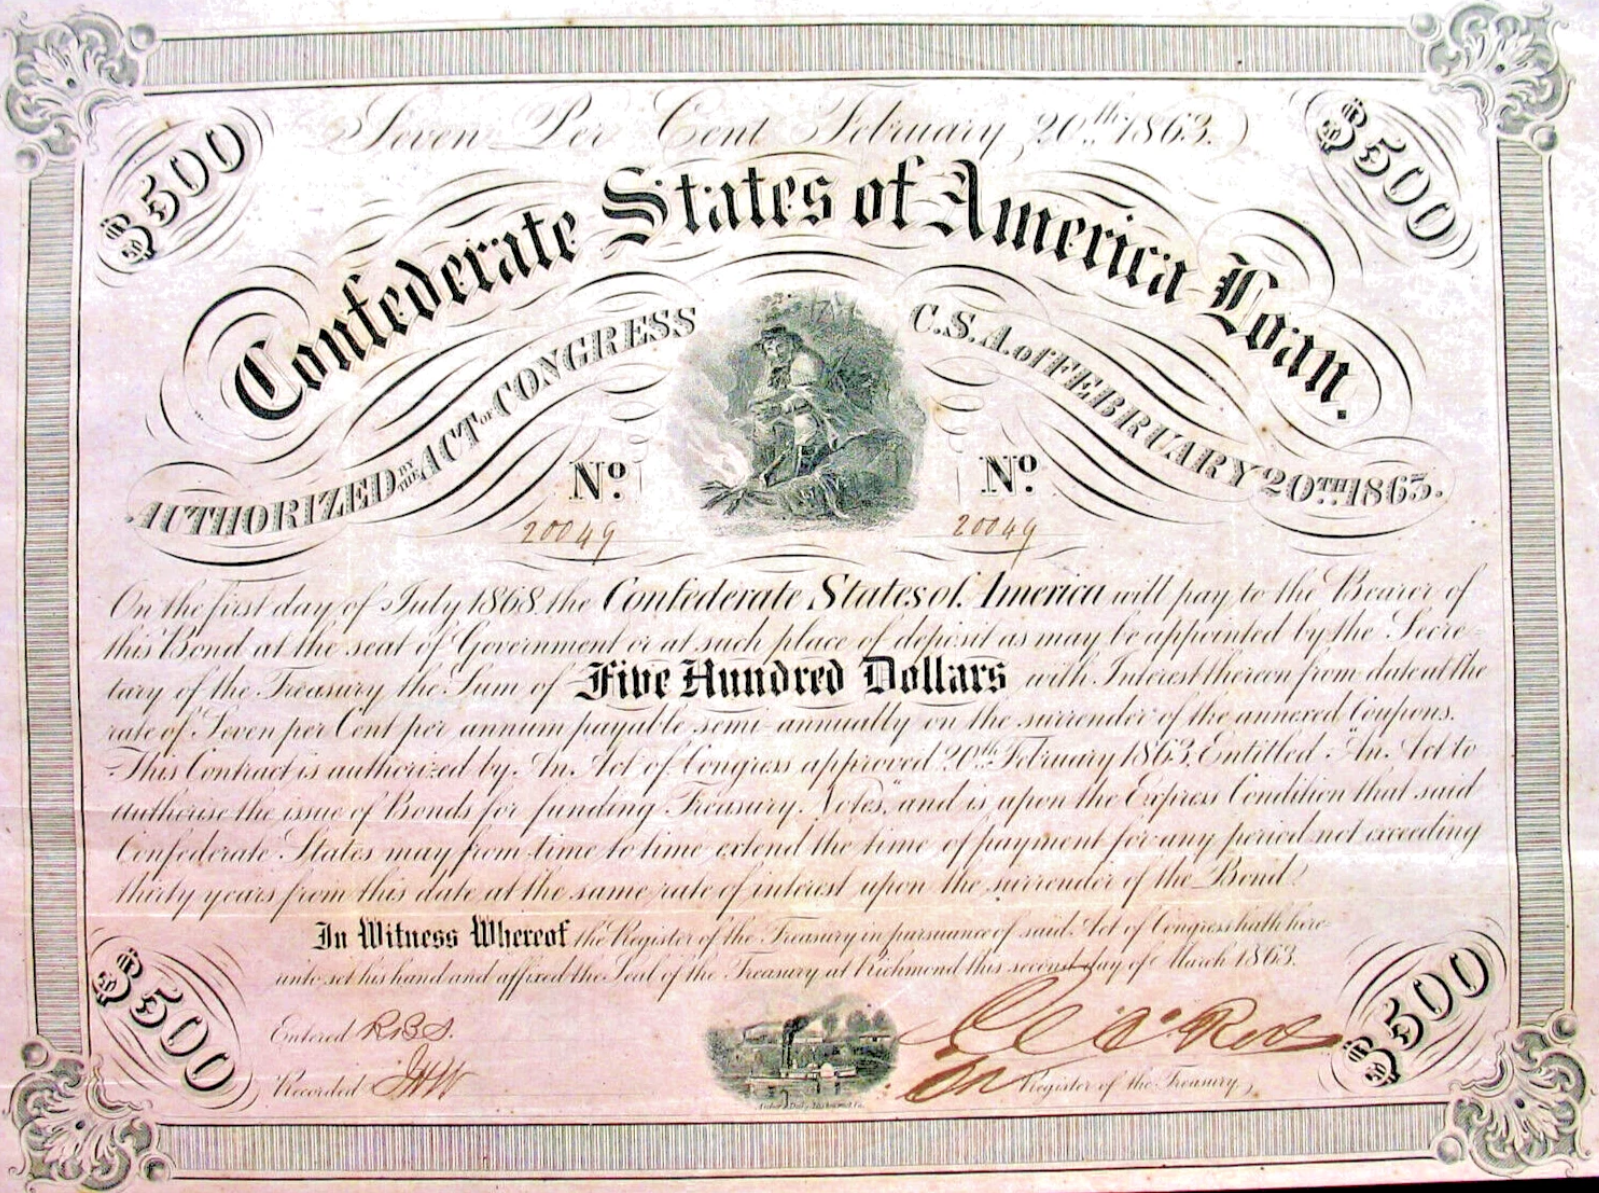 $500
$500
Seven Per Cent February 20th 1863.
Confederate States of America Loan.
AUTHORIZED BY THE ACT OF CONGRESS C.S.A. of FEBRUARY 20TH 1863.
No. No.
20049 20049
On the first day of July 1868 the Confederate States of America will pay to the Bearer of
this Bond at the seat of Government or at such place of deposit as may be appointed by the Secre-
tary of the Treasury the Sum of Five Hundred Dollars with Interest thereon from date at the
rate of Seven per Cent per annum payable semi-annually on the surrender of the annexed Coupons.
This Contract is authorized by An Act of Congress approved 20th February 1863, Entitled "An Act to
authorise the issue of Bonds for funding Treasury Notes," and is upon the Express Condition that said
Confederate States may from time to time extend the time of payment for any period not exceeding
thirty years from this date at the same rate of interest upon the surrender of the Bond.
In Witness Whereof the Register of the Treasury in pursuance of said Act of Congress hath here
unto set his hand and affixed the Seal of the Treasury at Richmond this second day of March 1863.
$500
$500
Entered
Recorded
Register of the Treasury